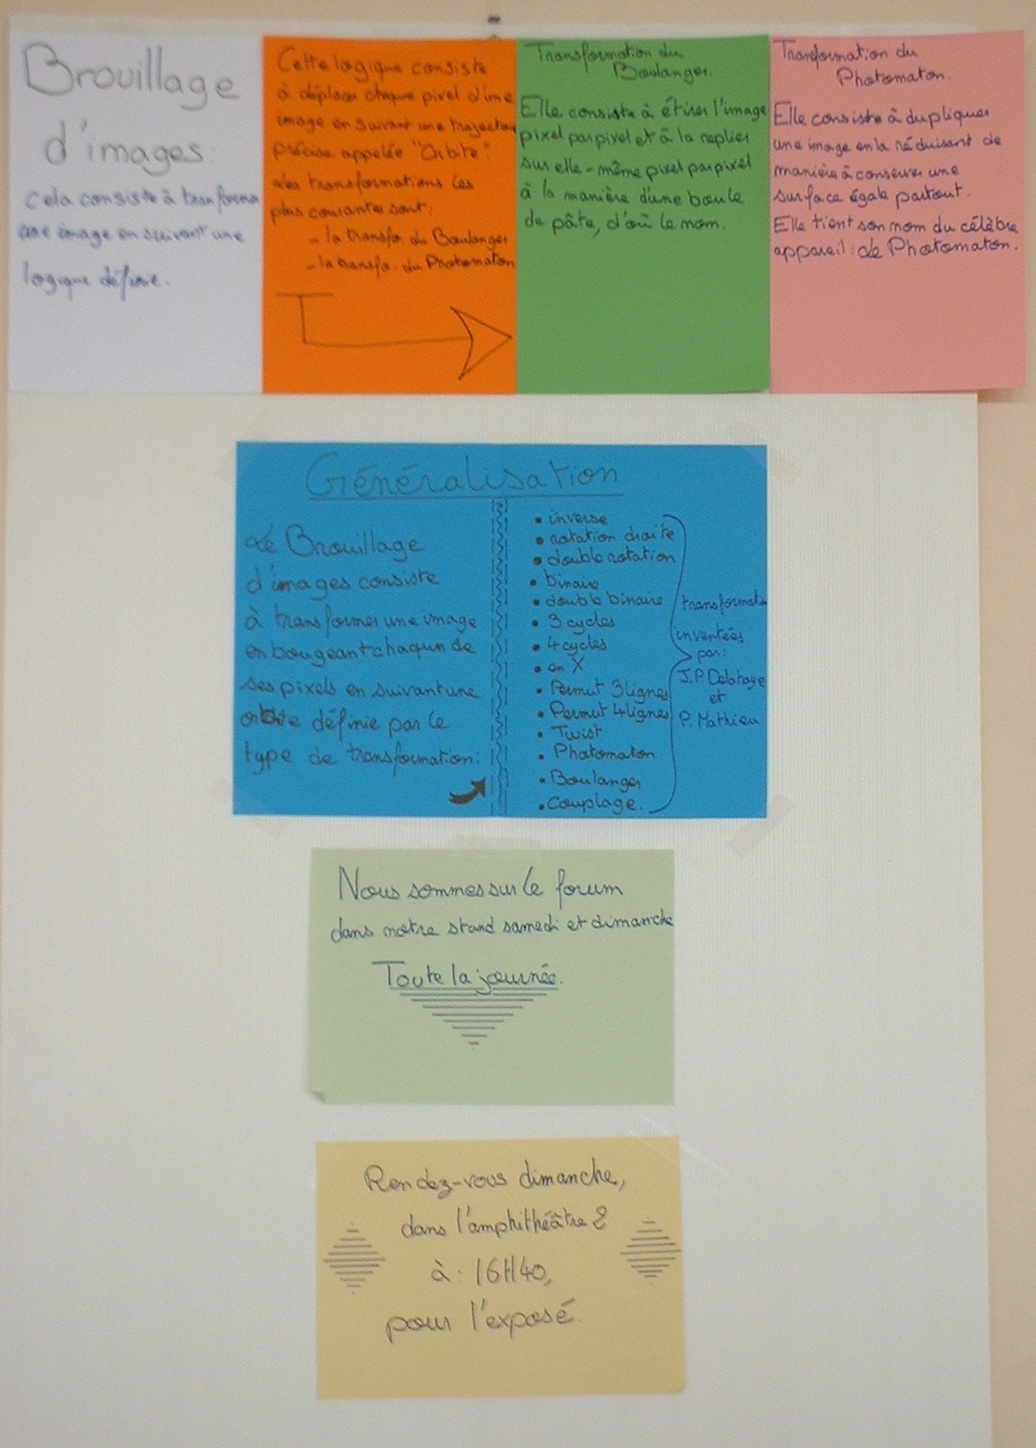 Brouillage
d'images.
cela consiste à transformer
une image en suivant une
logique définie.
Cette logique consiste
à déplacer chaque pixel d'une
image en suivant une trajectoire
précise appelée "Orbite".
Les transformations les
plus courantes sont:
- la transfo. du Boulanger
- la transfo. du Photomaton
Transformation du
Boulanger.
Elle consiste à étirer l'image
pixel par pixel et à la replier
sur elle-même pixel par pixel
à la manière d'une boule
de pâte, d'où le nom.
Tranformation du
Photomaton.
Elle consiste à dupliquer
une image en la réduisant de
manière à conserver une
surface égale partout.
Elle tient son nom du célèbre
appareil: le Photomaton.
Généralisation
Le Brouillage
d'images consiste
à transformer une image
en bougeant chaqun de
ses pixels en suivant une
orbite définie par le
type de transformation:
• inverse
• rotation droite
• double rotation
• binaire
• double binaire
• 3 cycles
• 4 cycles
• en X
• Permut 3 lignes
• Permut 4 lignes
• Twist
• Photomaton
• Boulanger
• Couplage.
transformation
inventées
par:
J.P. Delahaye
et
P. Mathieu
Nous sommes sur le forum
dans notre stand samedi et dimanche
Toute la journée.
Rendez-vous dimanche,
dans l'amphithéâtre 2
à: 16H40,
pour l'exposé.